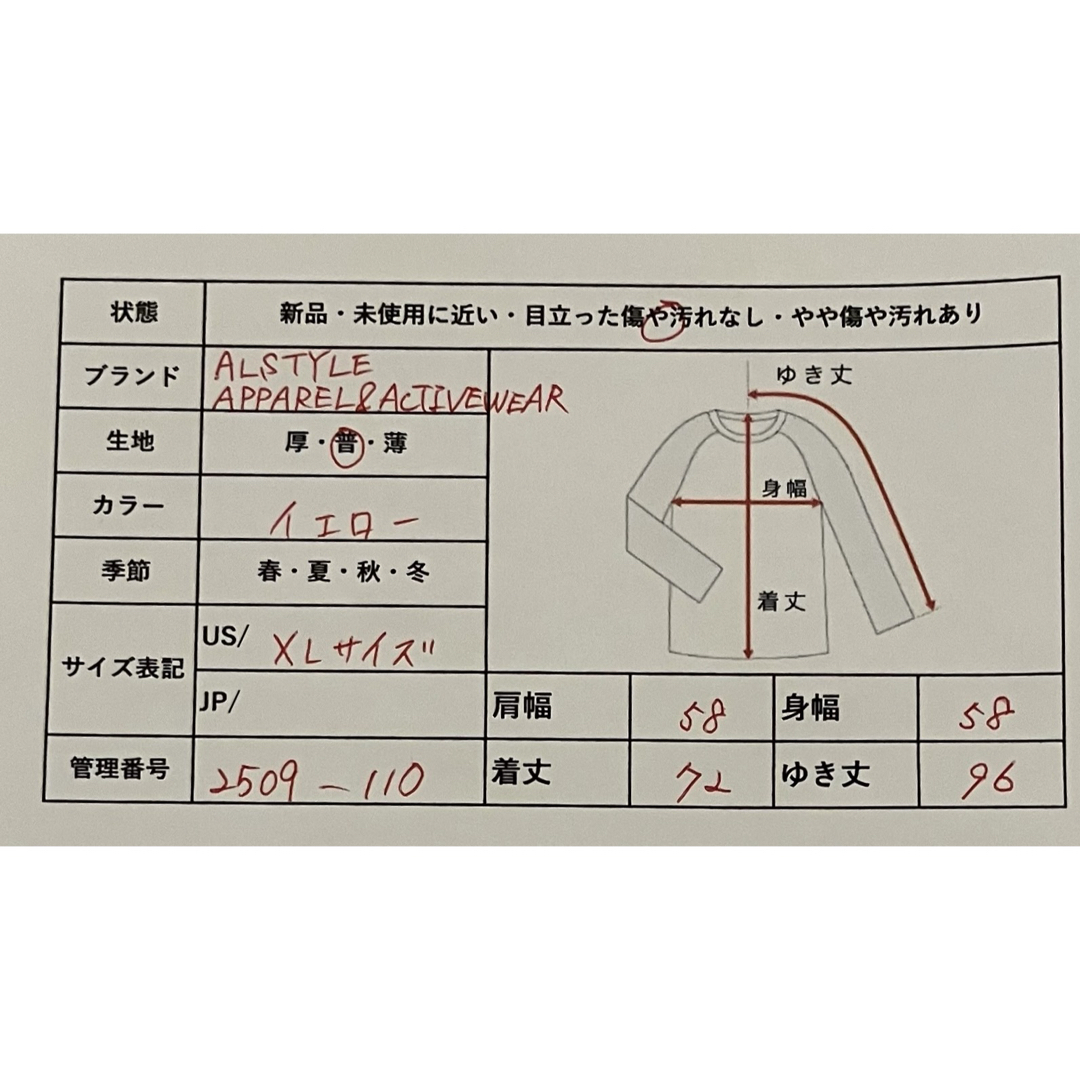 状態 新品・未使用に近い・目立った傷や汚れなし・やや傷や汚れあり
ブランド ALSTYLE
APPAREL&ACTIVEWEAR
生地 厚・普・薄
カラー イエロー
季節 春・夏・秋・冬
サイズ表記 US/ XLサイズ
JP/
管理番号 2509-110
ゆき丈
身幅
着丈
肩幅 58 身幅 58
着丈 72 ゆき丈 96